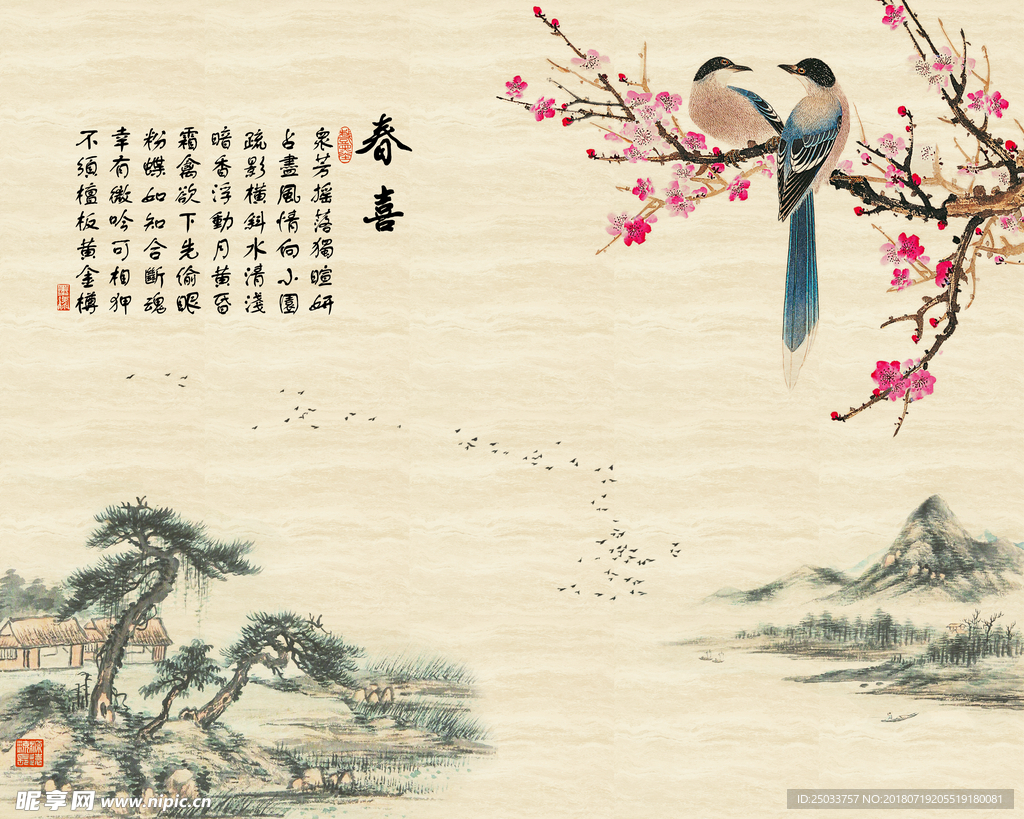 春喜
泉芳摇落獨暄妍
占盡風情向小園
疏影橫斜水清淺
暗香浮動月黄昏
霜禽欲下先偷眼
粉蝶如知合斷魂
幸有微吟可相狎
不須檀板黄金樽
昵享网 www.nipic.cn
ID:25033757 NO:20180719205519180081